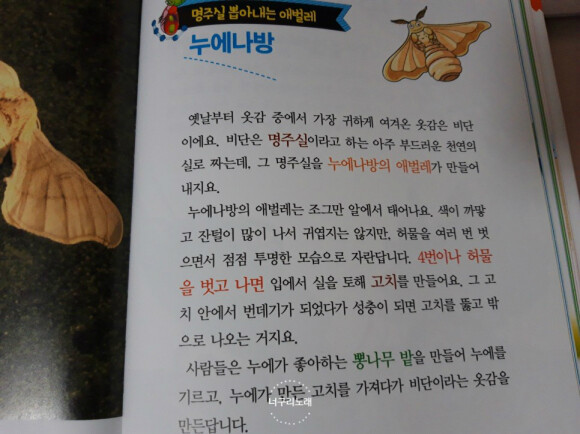 명주실 뽑아내는 애벌레
누에나방
옛날부터 옷감 중에서 가장 귀하게 여겨온 옷감은 비단
이에요. 비단은 명주실이라고 하는 아주 부드러운 천연의
실로 짜는데, 그 명주실을 누에나방의 애벌레가 만들어
내지요.
누에나방의 애벌레는 조그만 알에서 태어나요. 색이 까맣
고 잔털이 많이 나서 귀엽지는 않지만, 허물을 여러 번 벗
으면서 점점 투명한 모습으로 자란답니다. 4번이나 허물
을 벗고 나면 입에서 실을 토해 고치를 만들어요. 그 고
치 안에서 번데기가 되었다가 성충이 되면 고치를 뚫고 밖
으로 나오는 거지요.
사람들은 누에가 좋아하는 뽕나무 밭을 만들어 누에를
기르고, 누에가 만든 고치를 가져다가 비단이라는 옷감을
너구리노래
만든답니다.